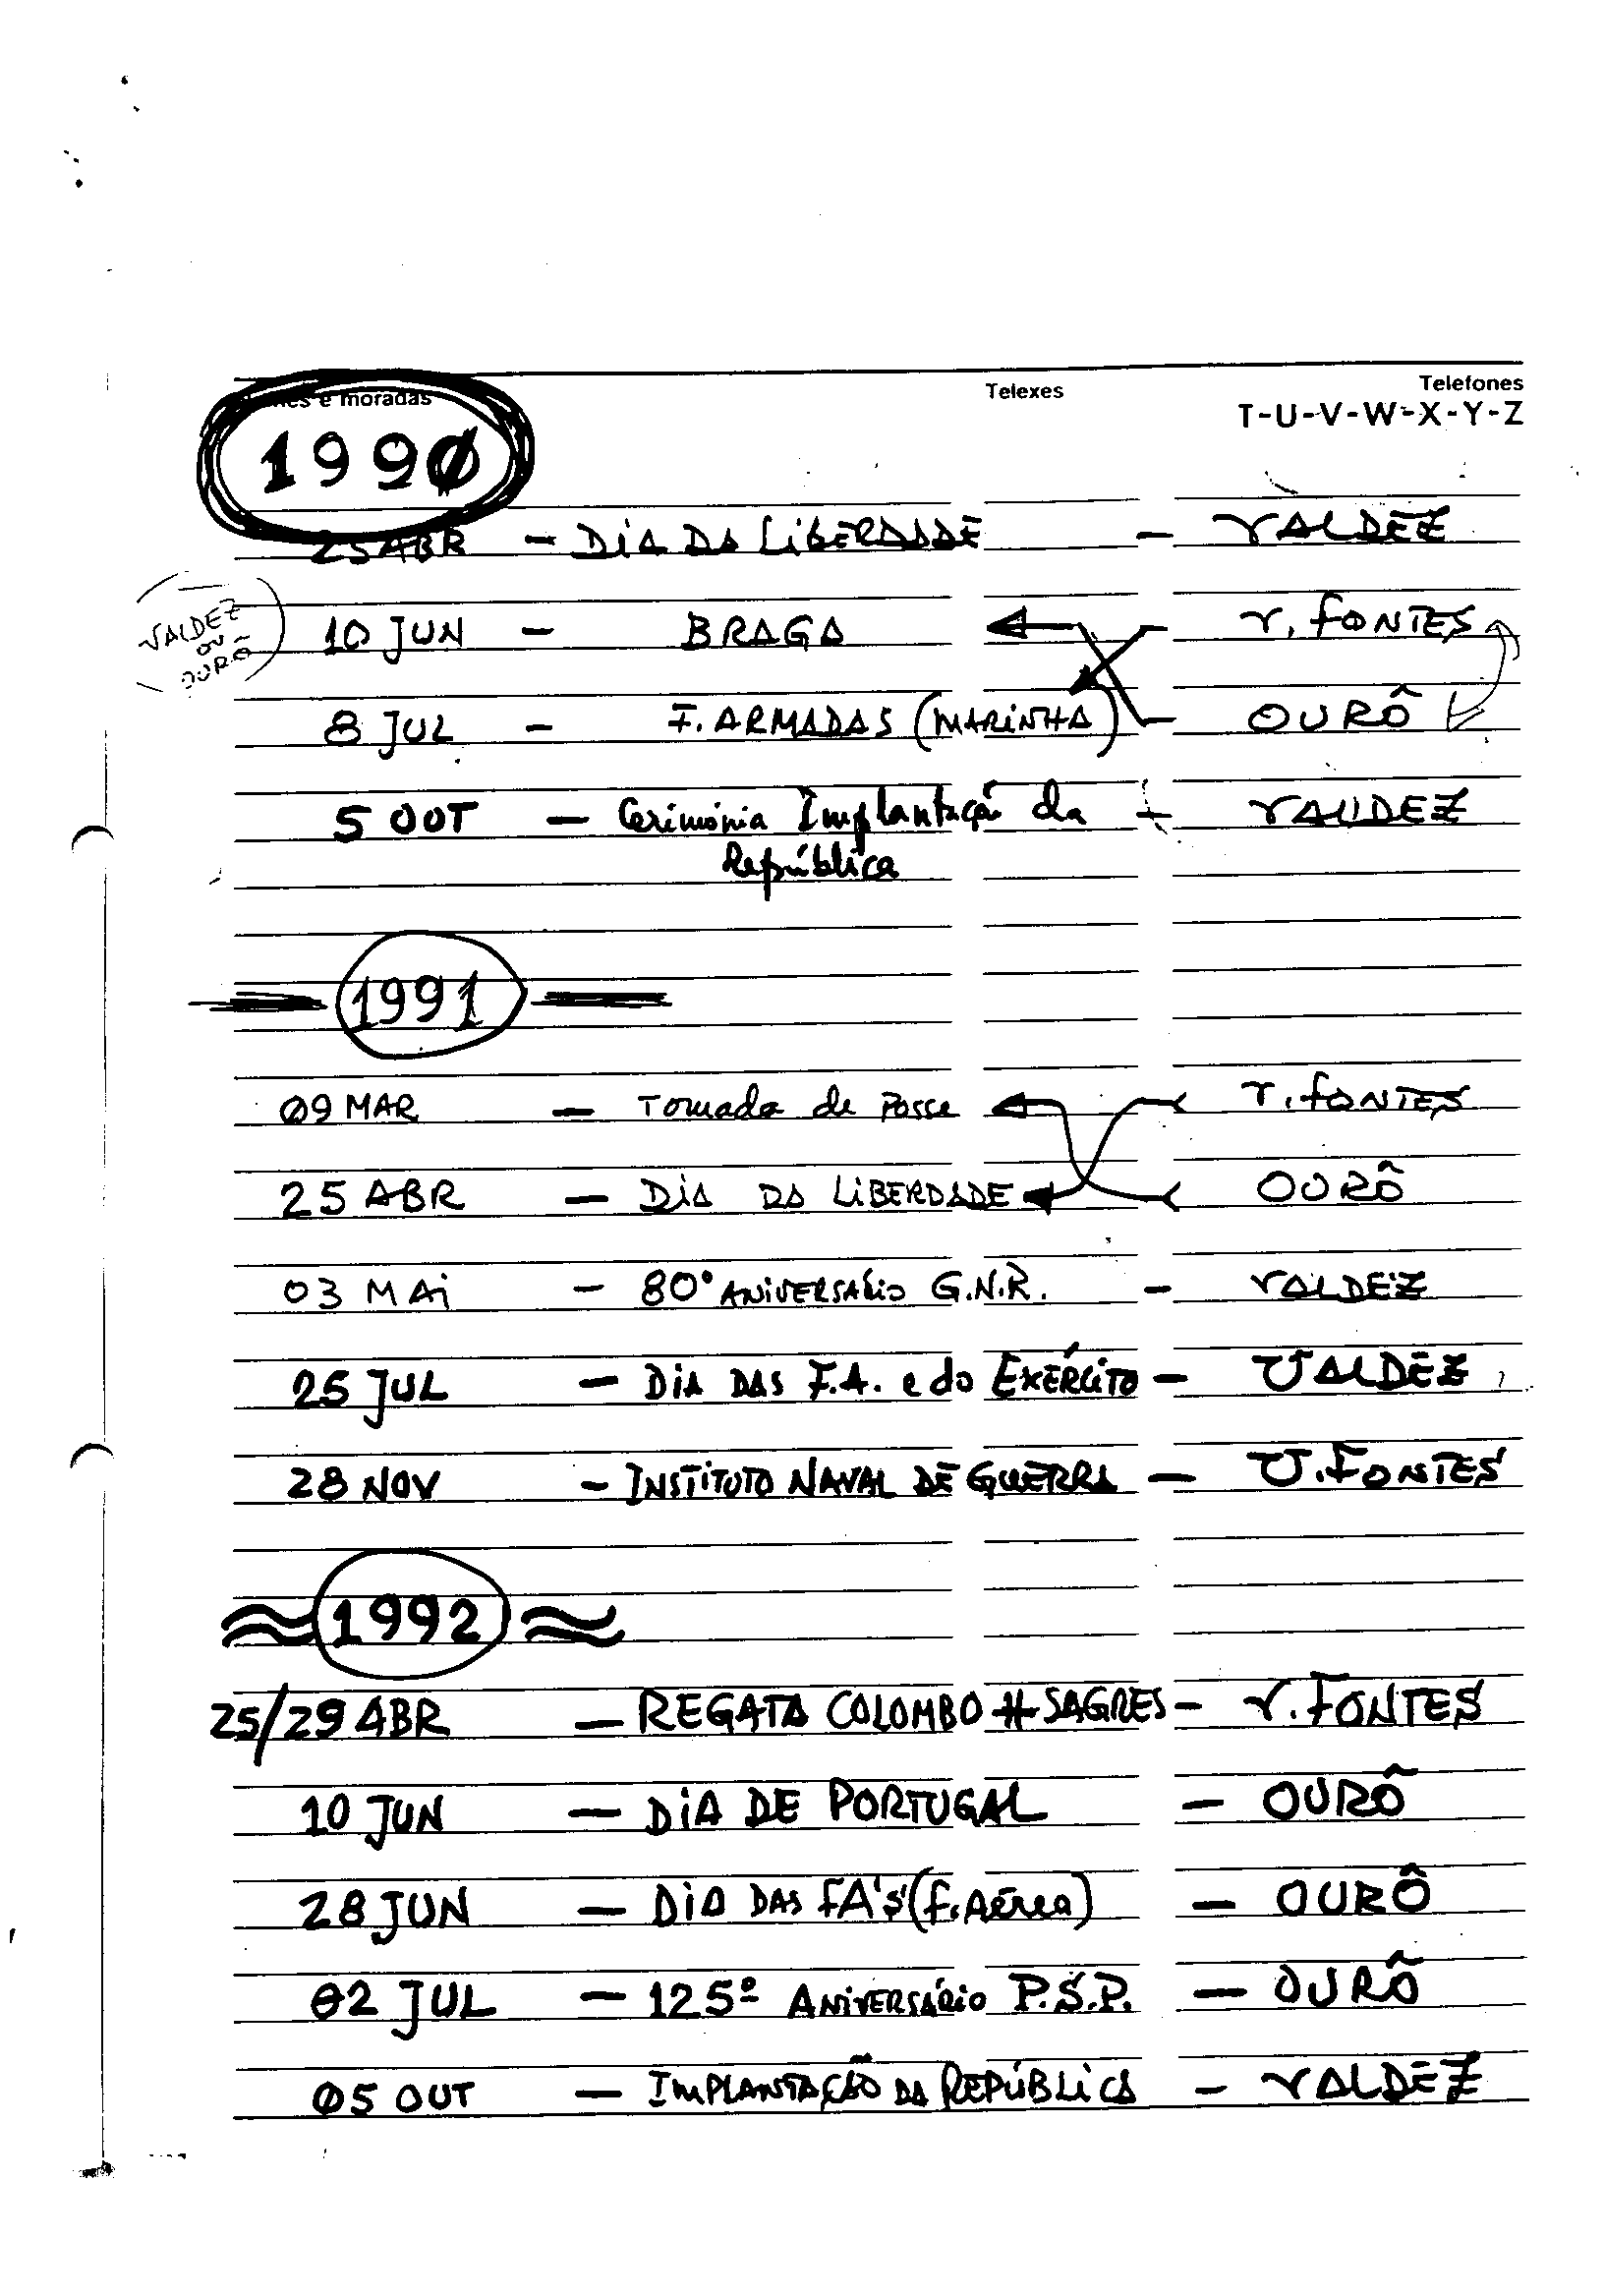 Telexes Telefones
e moradas T-U-V-W-X-Y-Z
1990
25 ABR - DIA DA LIBERDADE - VALDEZ
VALDEZ OU OURÔ
10 JUN - BRAGA - V. FONTES
8 JUL - F. ARMADAS (MARINHA) - OURÔ
5 OUT - Cerimónia Implantação da - VALDEZ
República
1991
09 MAR - Tomada de Posse V. FONTES
25 ABR - DIA DA LIBERDADE OURÔ
03 MAI - 80º ANIVERSÁRIO G.N.R. - VALDEZ
25 JUL - DIA DAS F.A. e do EXÉRCITO - VALDEZ
28 NOV - INSTITUTO NAVAL DE GUERRA - V. FONTES
1992
25/29 ABR - REGATA COLOMBO # SAGRES - V. FONTES
10 JUN - DIA DE PORTUGAL - OURÔ
28 JUN - DIA DAS FA'S (F. Aérea) - OURÔ
02 JUL - 125º ANIVERSÁRIO P.S.P. - OURÔ
05 OUT - IMPLANTAÇÃO DA REPÚBLICA - VALDEZ